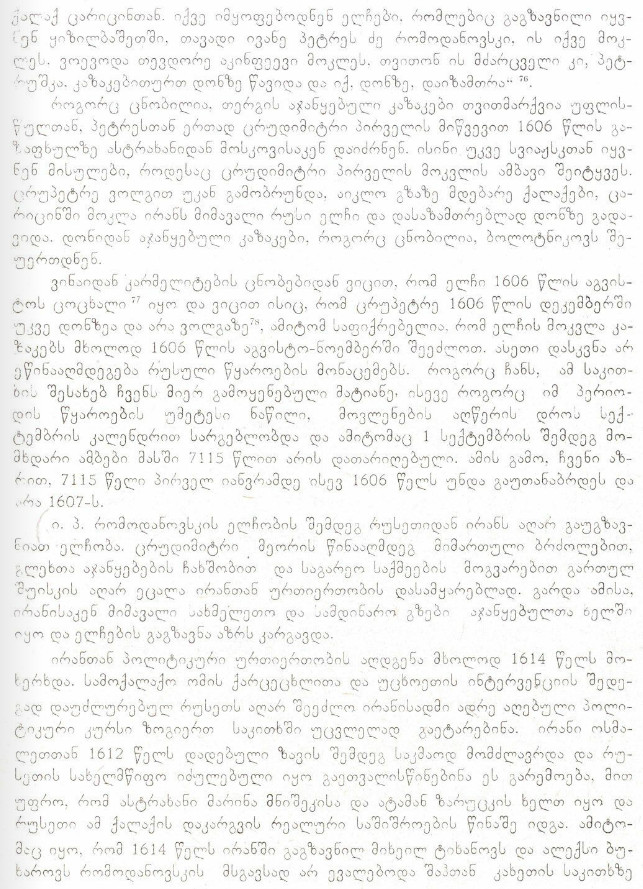 ქალაქ ცარიცინთან. იქვე იმყოფებოდნენ ელჩები, რომლებიც გაგზავნილი იყვ-
ნენ ყიზილბაშეთში, თავადი ივანე პეტრეს ძე რომოდანოვსკი, ის იქვე მოკ-
ლეს. ვოევოდა თევდორე აკინფეევი მოკლეს. თვითონ ის მძარცველი კი, პეტ-
რუშკა, კაზაკებითურთ დონზე წავიდა და იქ, დონზე, დაიზამთრა“ ⁷⁶.
როგორც ცნობილია, თერგის აჯანყებული კაზაკები თვითმარქვია უფლის-
წულთან, პეტრესთან ერთად ცრუდიმიტრი პირველის მიწვევით 1606 წლის გა-
ზაფხულზე ასტრახანიდან მოსკოვისაკენ დაიძრნენ. ისინი უკვე სვიაჟსკთან იყვ-
ნენ მისულები, როდესაც ცრუდიმიტრი პირველის მოკვლის ამბავი შეიტყვეს.
ცრუპეტრე ვოლგით უკან გამობრუნდა, აიკლო გზაზე მდებარე ქალაქები, ცა-
რიცინში მოკლა ირანს მიმავალი რუსი ელჩი და დასაზამთრებლად დონზე გადა-
ვიდა. დონიდან აჯანყებული კაზაკები, როგორც ცნობილია, ბოლოტნიკოვს შე-
უერთდნენ.
ვინაიდან კარმელიტების ცნობებიდან ვიცით, რომ ელჩი 1606 წლის აგვის-
ტოს ცოცხალი ⁷⁷ იყო და ვიცით ისიც, რომ ცრუპეტრე 1606 წლის დეკემბერში
უკვე დონზეა და არა ვოლგაზე⁷⁸, ამიტომ საფიქრებელია, რომ ელჩის მოკვლა კა-
ზაკებს მხოლოდ 1606 წლის აგვისტო-ნოემბერში შეეძლოთ. ასეთი დასკვნა არ
ეწინააღმდეგება რუსული წყაროების მონაცემებს. როგორც ჩანს, ამ საკით-
ხის შესახებ ჩვენს მიერ გამოყენებული მატიანე, ისევე როგორც იმ პერიო-
დის წყაროების უმეტესი ნაწილი, მოვლენების აღწერის დროს სექ-
ტემბრის კალენდრით სარგებლობდა და ამიტომაც 1 სექტემბრის შემდეგ მო-
მხდარი ამბები მასში 7115 წლით არის დათარიღებული. ამის გამო, ჩვენი აზ-
რით, 7115 წელი პირველ იანვრამდე ისევ 1606 წელს უნდა გაუთანაბრდეს და
არა 1607-ს.
ი. პ. რომოდანოვსკის ელჩობის შემდეგ რუსეთიდან ირანს აღარ გაუგზავ-
ნიათ ელჩობა. ცრუდიმიტრი მეორის წინააღმდეგ მიმართული ბრძოლებით,
გლეხთა აჯანყებების ჩახშობით და საგარეო საქმეების მოგვარებით გართულ
შუისკის აღარ ეცალა ირანთან ურთიერთობის დასამყარებლად. გარდა ამისა,
ირანისაკენ მიმავალი სახმელეთო და სამდინარო გზები აჯანყებულთა ხელში
იყო და ელჩების გაგზავნა აზრს კარგავდა.
ირანთან პოლიტიკური ურთიერთობის აღდგენა მხოლოდ 1614 წელს მო-
ხერხდა. სამოქალაქო ომის ქარცეცხლითა და უცხოეთის ინტერვენციის შედე-
გად დაუძლურებულ რუსეთს აღარ შეეძლო ირანისადმი ადრე აღებული პოლი-
ტიკური კურსი ზოგიერთ საკითხში უცვლელად გაეტარებინა. ირანი ოსმა-
ლეთთან 1612 წელს დადებული ზავის შემდეგ საკმაოდ მომძლავრდა და რუ-
სეთის სახელმწიფო იძულებული იყო გაეთვალისწინებინა ეს გარემოება, მით
უფრო, რომ ასტრახანი მარინა მნიშეკისა და ატამან ზარუცკის ხელთ იყო და
რუსეთი ამ ქალაქის დაკარგვის რეალური საშიშროების წინაშე იდგა. ამიტო-
მაც იყო, რომ 1614 წელს ირანში გაგზავნილ მიხეილ ტიხანოვს და ალექსი ბუ-
ხაროვს რომოდანოვსკის მსგავსად არ ევალებოდა შაჰთან კახეთის საკითხზე